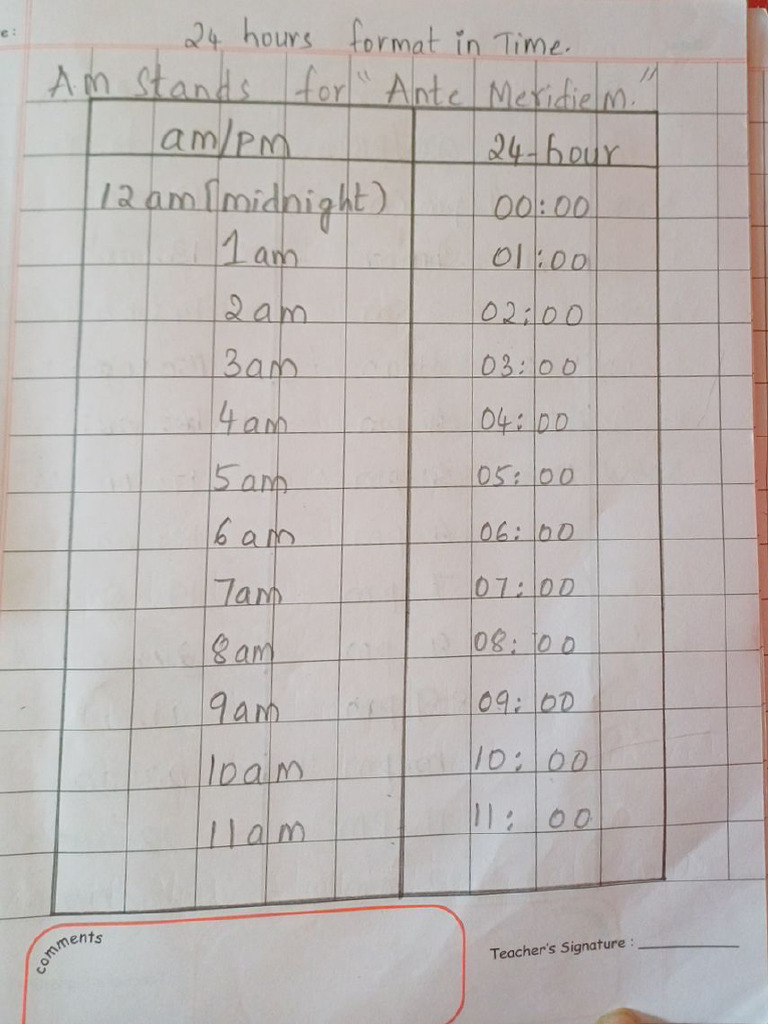 e:
24 hours format in Time.
Am Stands for "Ante Meridiem."
am/pm 24-hour
12am (midnight) 00:00
1am 01:00
2am 02:00
3am 03:00
4am 04:00
5am 05:00
6am 06:00
7am 07:00
8am 08:00
9am 09:00
10am 10:00
11am 11:00
comments
Teacher's Signature :